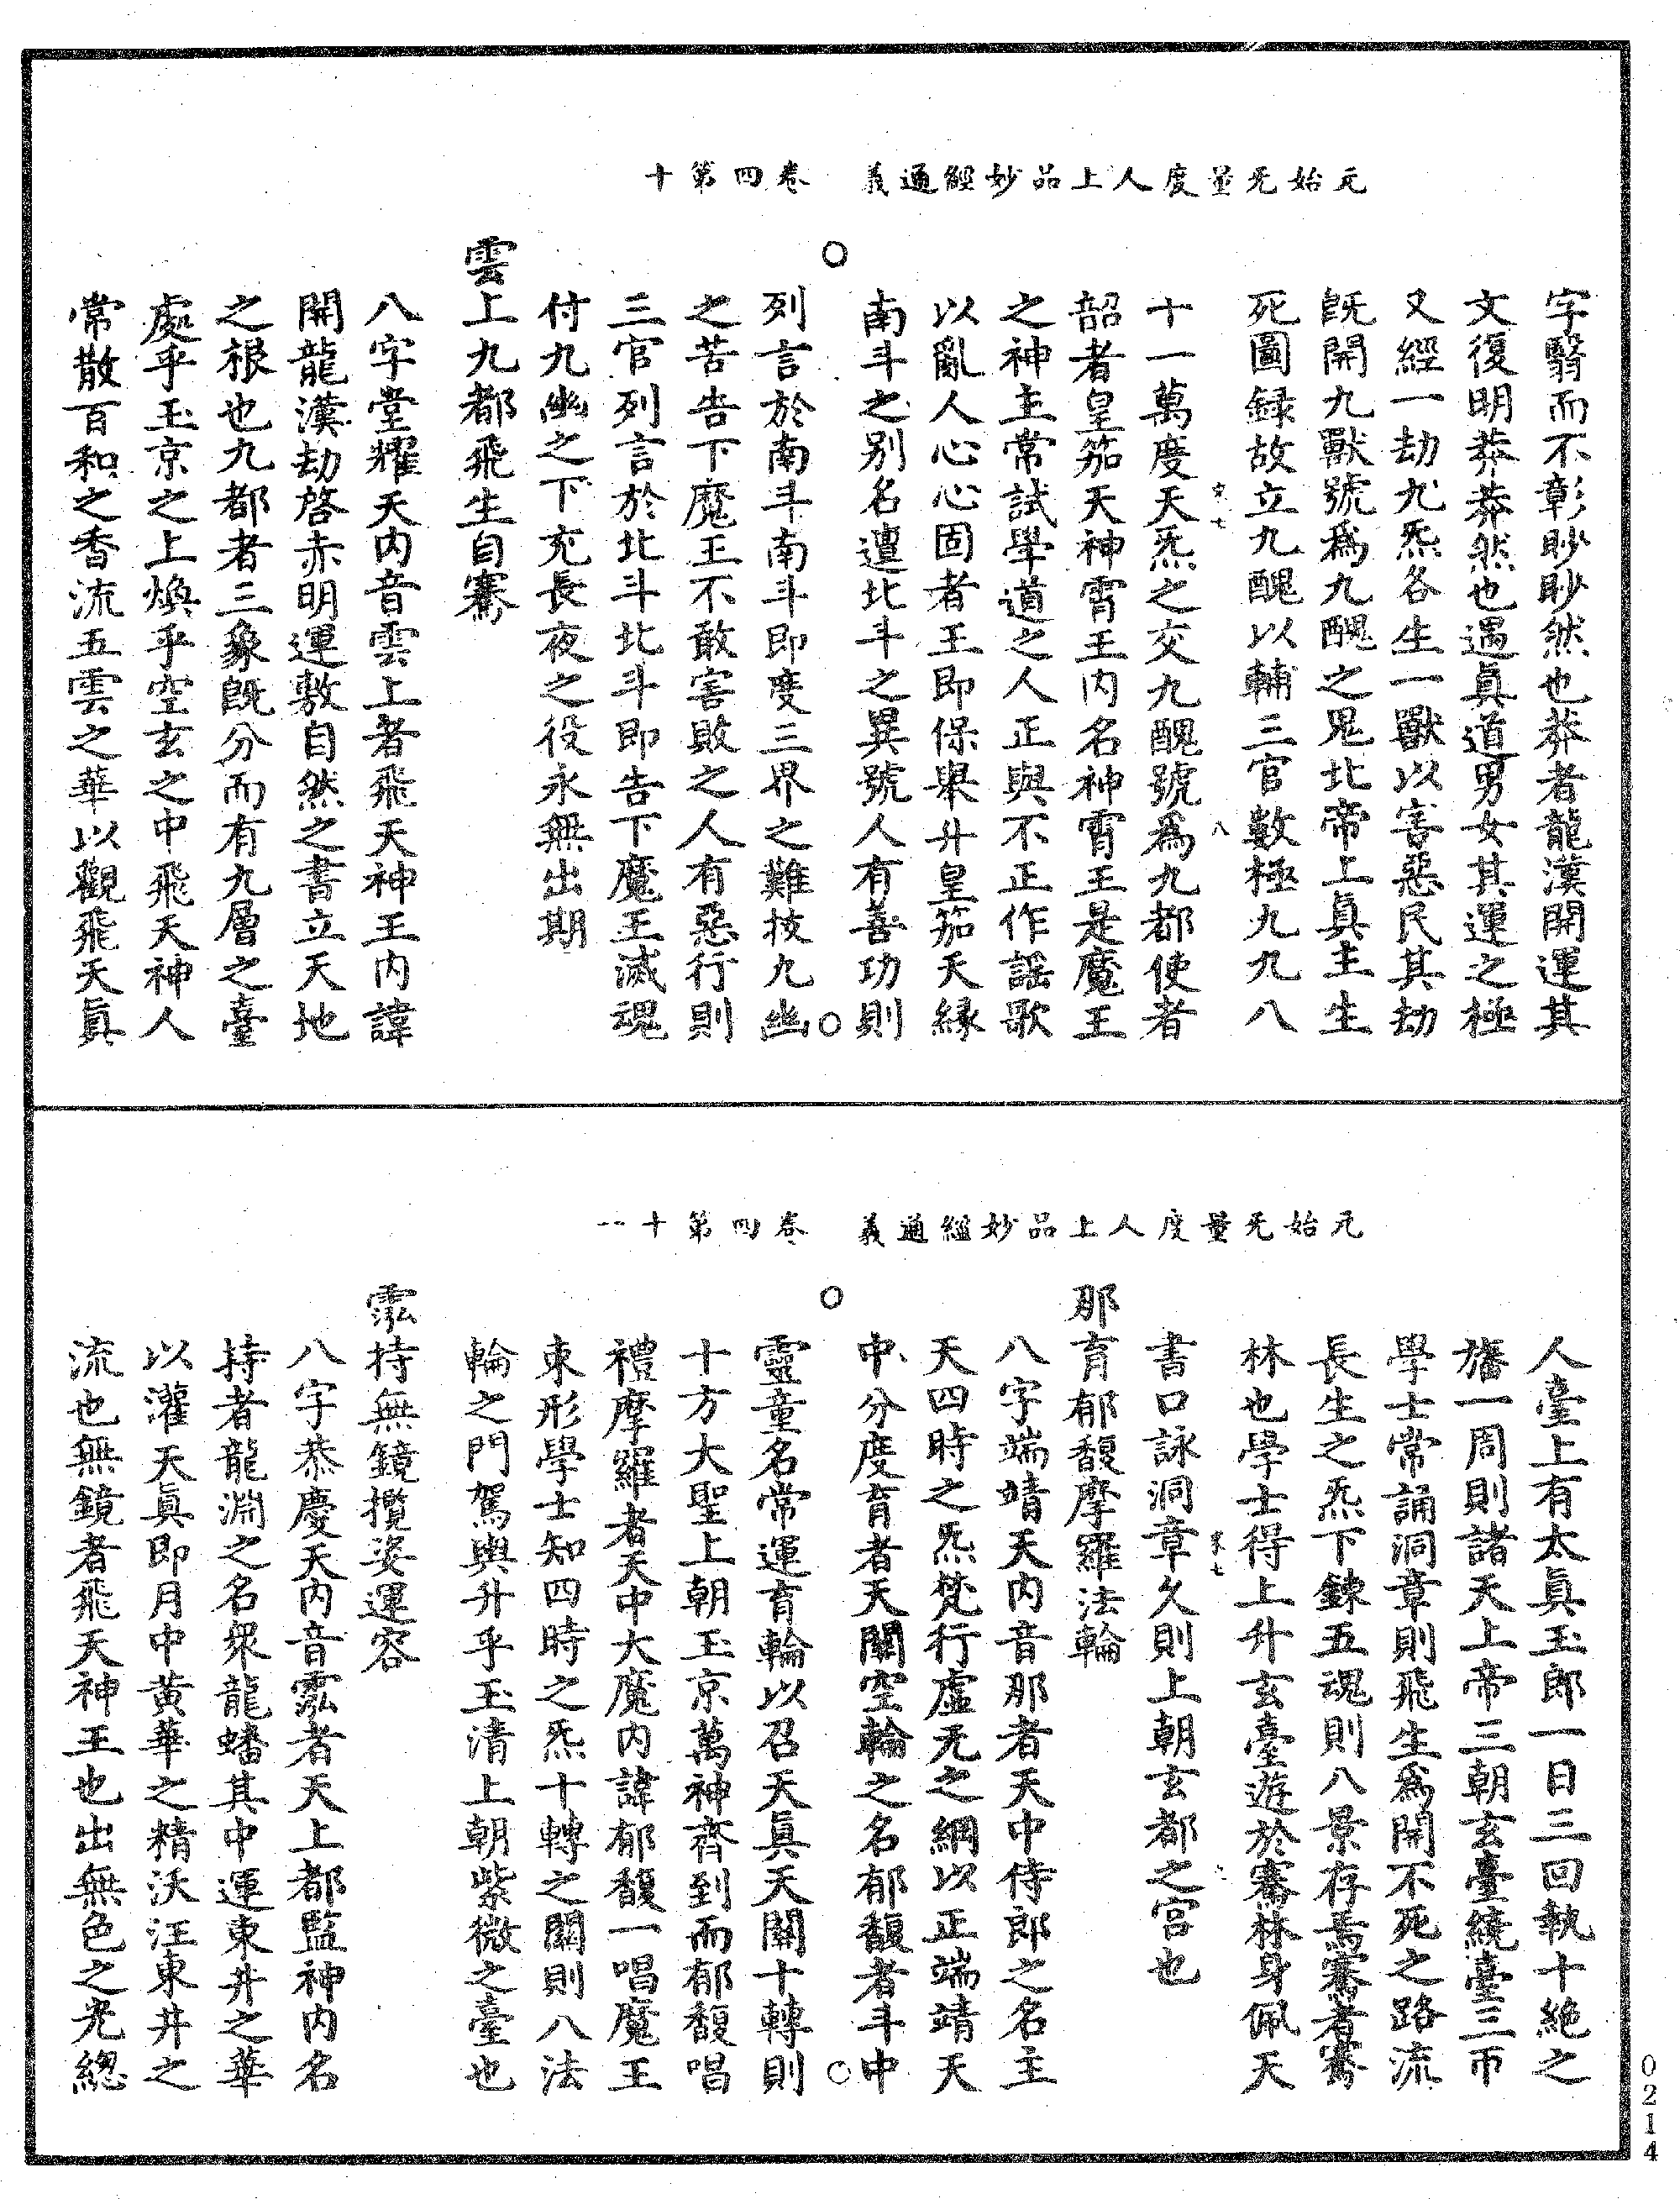 元始无量度人上品妙經通義　卷四第十
字翳而不彰眇眇然也莽者龍漢開運其
文復明莽莽然也遇眞道男女其運之極
又經一劫九炁各生一獸以害惡民其劫
旣開九獸號爲九醜之鬼北帝上眞主生
死圖録故立九醜以輔三官數極九九八
十一萬度天炁之交九醜號爲九都使者
韶者皇笳天神霄王内名神霄王是魔王
之神主常試學道之人正與不正作謡歌
以亂人心心固者王即保舉升皇笳天緣
南斗之别名邅北斗之異號人有善功則
列言於南斗南斗即度三界之難拔九幽
之苦告下魔王不敢害敗之人有惡行則
三官列言於北斗北斗即告下魔王滅魂
付九幽之下充長夜之役永無出期
雲上九都飛生自騫
八字堂耀天内音雲上者飛天神王内諱
開龍漢劫啓赤明運敷自然之書立天地
之根也九都者三象旣分而有九層之臺
處乎玉京之上煥乎空玄之中飛天神人
常散百和之香流五雲之華以觀飛天眞
元始无量度人上品妙經通義　卷四第十一
人臺上有太眞玉郎一日三回執十絶之
旛一周則諸天上帝三朝玄臺繞臺三帀
學士常誦洞章則飛生爲開不死之路流
長生之炁下錬五魂則八景存焉騫者騫
林也學士得上升玄臺遊於騫林身佩天
書口詠洞章久則上朝玄都之宫也
那育郁馥摩羅法輪
八字端靖天内音那者天中侍郎之名主
天四時之炁梵行虛无之綱以正端靖天
中分度育者天關空輪之名郁馥者斗中
靈童名常運育輪以召天眞天關十轉則
十方大聖上朝玉京萬神齊到而郁馥唱
禮摩羅者天中大魔内諱郁馥一唱魔王
束形學士知四時之炁十轉之關則八法
輪之門駕輿升乎玉清上朝紫微之臺也
霐持無鏡攬姿運容
八字恭慶天内音霐者天上都監神内名
持者龍淵之名衆龍蟠其中運東井之華
以灌天眞即月中黄華之精沃汪東井之
流也無鏡者飛天神王也出無色之光總
0214